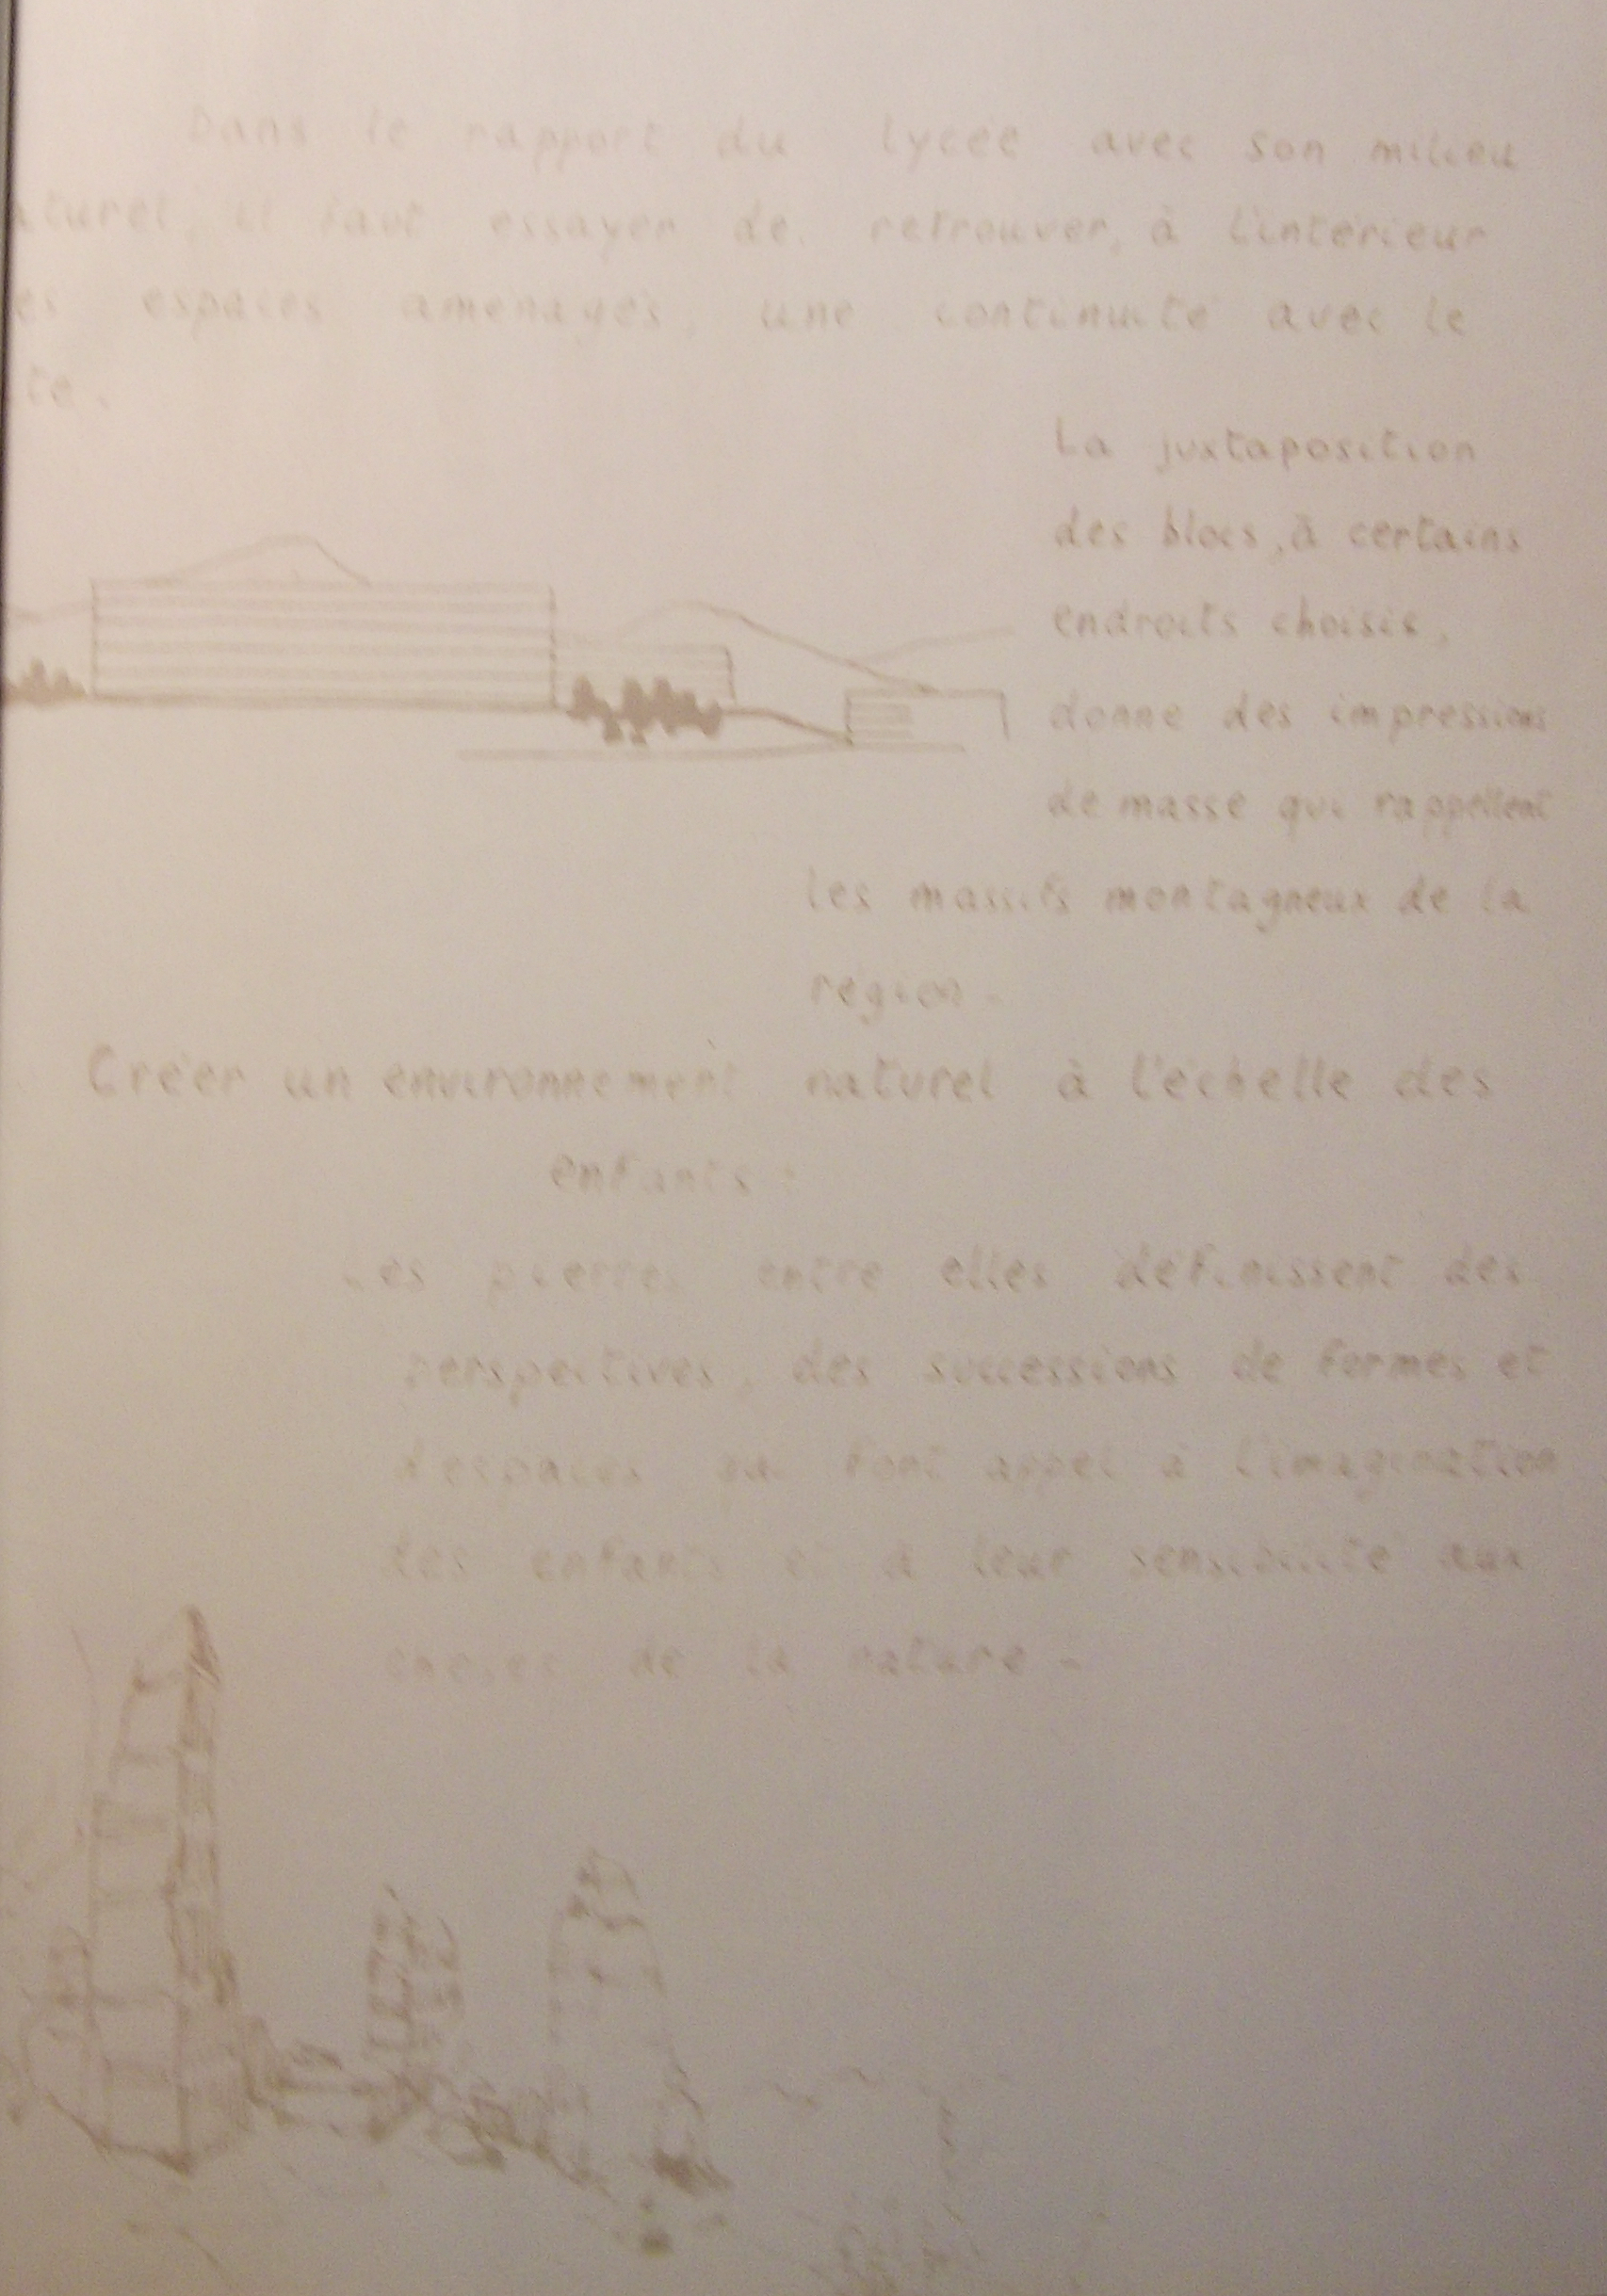 Dans le rapport du lycée avec son milieu
aturel, il faut essayer de retrouver, à l'intérieur
es espaces aménagés, une continuité avec le
te.
La juxtaposition
des blocs, à certains
endroits choisis,
donne des impressions
de masse qui rappellent
les massifs montagneux de la
région -
Créer un environnement naturel à l'échelle des
enfants :
Les pierres entre elles définissent des
perspectives, des successions de formes et
d'espaces qui font appel à l'imagination
des enfants et à leur sensibilité aux
de la nature -